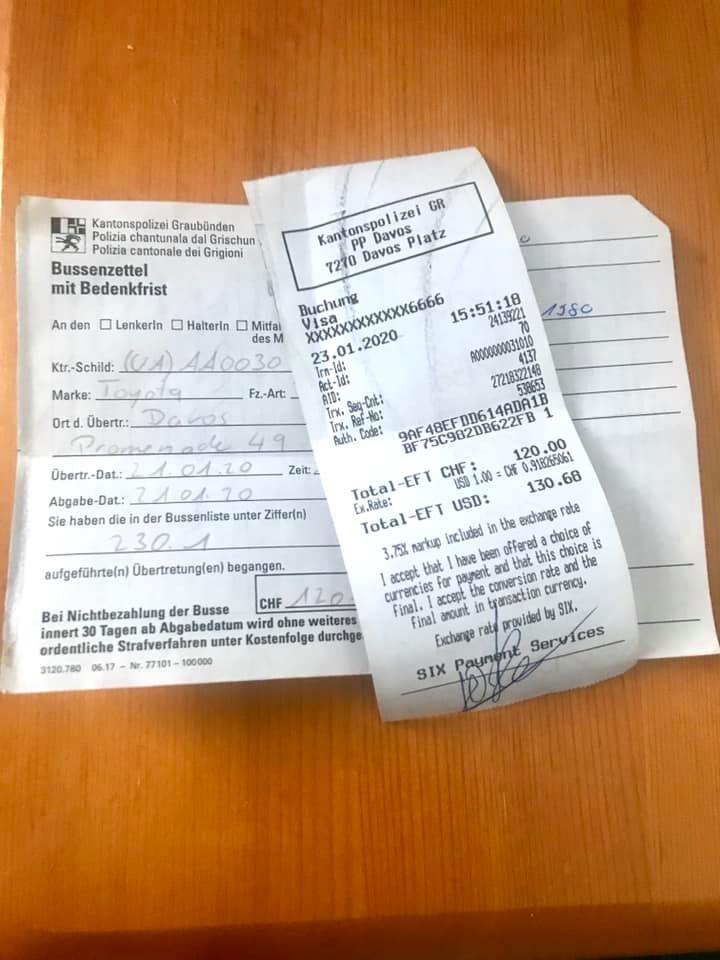 Kantonspolizei Graubünden
Polizia chantunala dal Grischun
Polizia cantonale dei Grigioni
Bussenzettel
mit Bedenkfrist
An den LenkerIn HalterIn Mitfa
des M
Ktr.-Schild: (UA) AA0030
Marke: Toyota Fz.-Art:
Ort d. Übertr.: Davos
Promenade 49
Übertr.-Dat.: 21.01.20 Zeit:
Abgabe-Dat.: 21.01.20
Sie haben die in der Bussenliste unter Ziffer(n)
230.1
aufgeführte(n) Übertretung(en) begangen.
CHF 120
Bei Nichtbezahlung der Busse
innert 30 Tagen ab Abgabedatum wird ohne weiteres
ordentliche Strafverfahren unter Kostenfolge durchge
3120.780 06.17 – Nr. 77101 – 100000
Kantonspolizei GR
PP Davos
7270 Davos Platz
Buchung
Visa
XXXXXXXXXXXX6666
23.01.2020 15:51:18
Trn-Id: 24139221
Act-Id: 70
AID: A0000000031010
Trx. Seq-Cnt: 4137
Trx. Ref-No: 27218322148
Auth. Code: 538653
9AF48EFDD614ADA1B
BF75C9B2DB622FB 1
Total-EFT CHF: 120.00
Ex.Rate: USD 1.00 = CHF 0.918265061
Total-EFT USD: 130.68
3.75% markup included in the exchange rate
I accept that I have been offered a choice of
currencies for payment and that this choice is
final. I accept the conversion rate and the
final amount in transaction currency.
Exchange rate provided by SIX.
SIX Payment Services